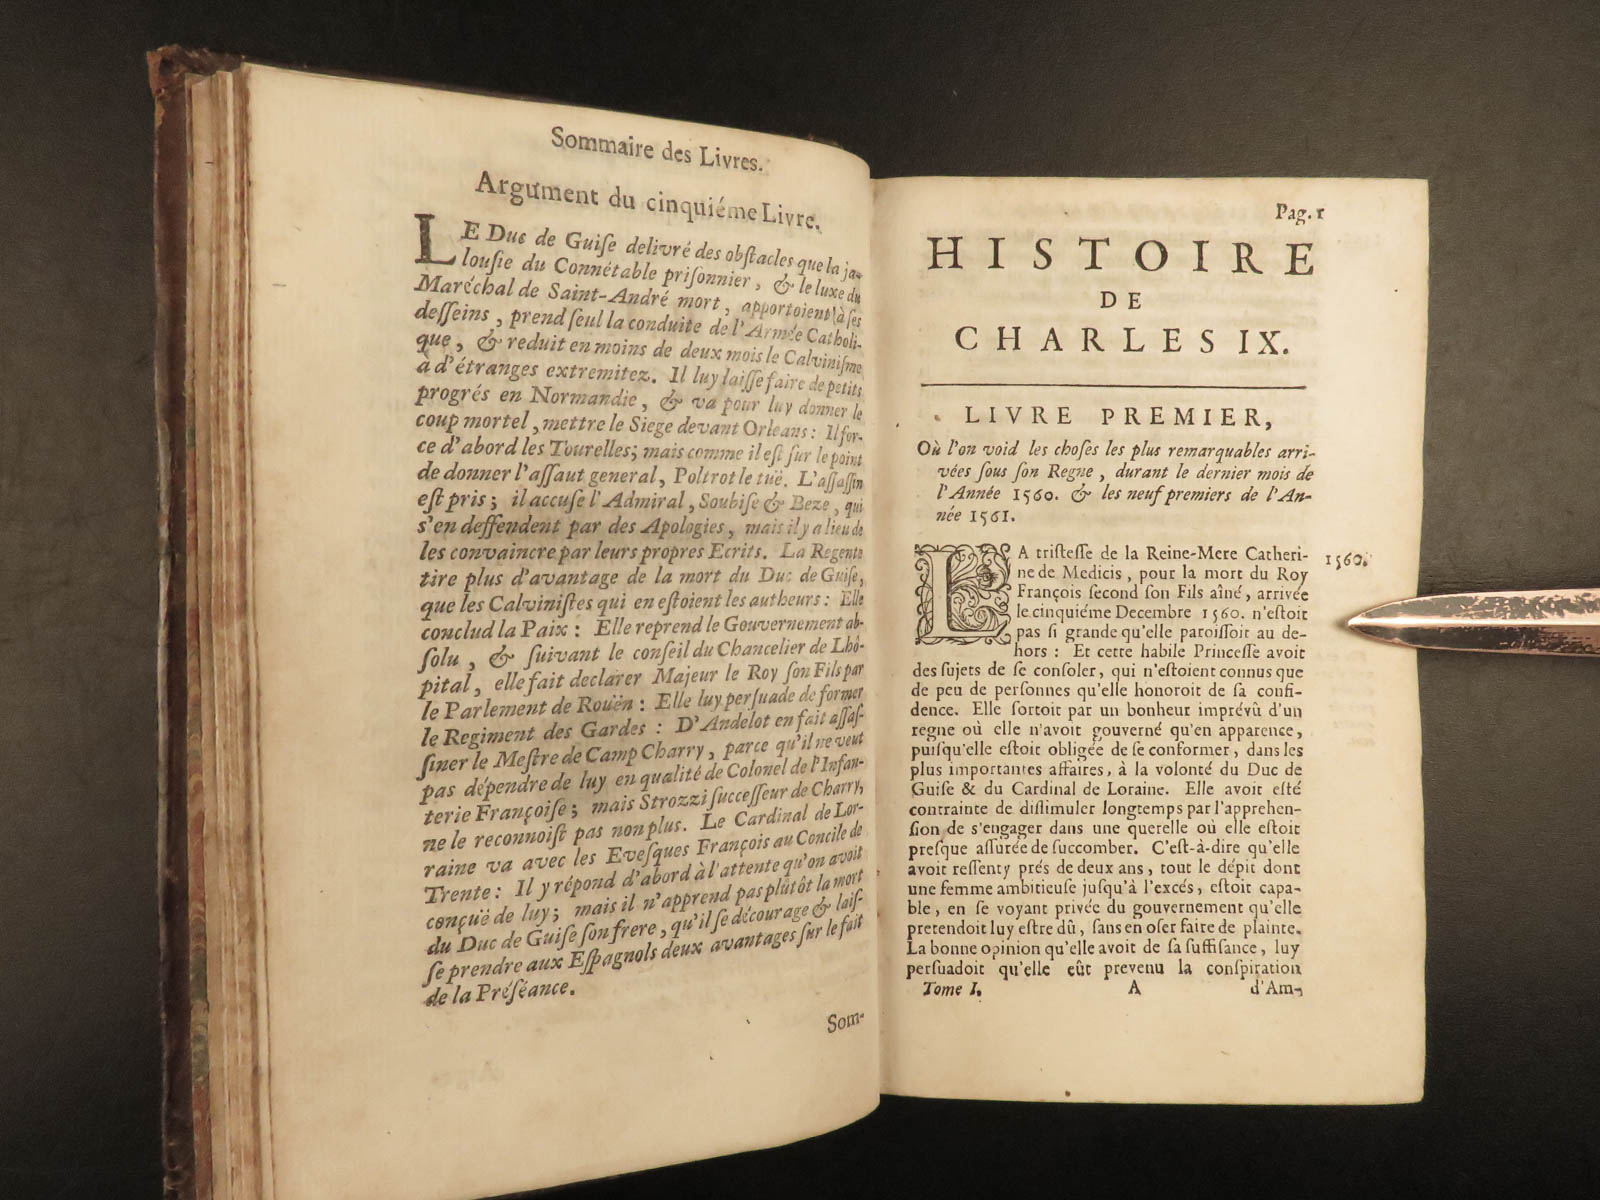 Sommaire des Livres.
Argument du cinquiéme Livre.
LE Duc de Guiſe delivré des obſtacles que la ja-
louſie du Connétable priſonnier, & le luxe du
Maréchal de Saint-André mort, apportoient à ſes
deſſeins, prend ſeul la conduite de l'Armée Catholi-
que, & reduit en moins de deux mois le Calviniſme
à d'étranges extremitez. Il luy laiſſe faire de petits
progrés en Normandie, & va pour luy donner le
coup mortel, mettre le Siege devant Orleans: Il for-
ce d'abord les Tourelles; mais comme il eſt ſur le point
de donner l'aſſaut general, Poltrot le tuë. L'aſſaſſin
eſt pris; il accuſe l'Admiral, Soubiſe & Beze, qui
s'en deffendent par des Apologies, mais il y a lieu de
les convaincre par leurs propres Ecrits. La Regente
tire plus d'avantage de la mort du Duc de Guiſe,
que les Calviniſtes qui en eſtoient les autheurs: Elle
conclud la Paix: Elle reprend le Gouvernement ab-
ſolu, & ſuivant le conſeil du Chancelier de Lhô-
pital, elle fait declarer Majeur le Roy ſon Fils par
le Parlement de Roüen: Elle luy perſuade de former
le Regiment des Gardes: D'Andelot en fait aſſaſ-
ſiner le Meſtre de Camp Charry, parce qu'il ne veut
pas dépendre de luy en qualité de Colonel de l'Infan-
terie Françoiſe; mais Strozzi ſucceſſeur de Charry,
ne le reconnoiſt pas non plus. Le Cardinal de Lor-
raine va avec les Eveſques François au Concile de
Trente: Il y répond d'abord à l'attente qu'on avoit
conçuë de luy; mais il n'apprend pas plûtôt la mort
du Duc de Guiſe ſon frere, qu'il ſe décourage & laiſ-
ſe prendre aux Eſpagnols deux avantages ſur le fait
de la Préſéance.
Som-
Pag. 1
HISTOIRE
DE
CHARLES IX.
LIVRE PREMIER,
Où l'on void les choſes les plus remarquables arri-
vées ſous ſon Regne, durant le dernier mois de
l'Année 1560. & les neuf premiers de l'An-
née 1561.
LA triſteſſe de la Reine-Mere Catheri-
ne de Medicis, pour la mort du Roy
François ſecond ſon Fils aîné, arrivée
le cinquiéme Decembre 1560. n'eſtoit
pas ſi grande qu'elle paroiſſoit au de-
hors: Et cette habile Princeſſe avoit
des ſujets de ſe conſoler, qui n'eſtoient connus que
de peu de perſonnes qu'elle honoroit de ſa confi-
dence. Elle ſortoit par un bonheur imprévû d'un
regne où elle n'avoit gouverné qu'en apparence,
puiſqu'elle eſtoit obligée de ſe conformer, dans les
plus importantes affaires, à la volonté du Duc de
Guiſe & du Cardinal de Loraine. Elle avoit eſté
contrainte de diſſimuler longtemps par l'apprehen-
ſion de s'engager dans une querelle où elle eſtoit
preſque aſſurée de ſuccomber. C'eſt-à-dire qu'elle
avoit reſſenty prés de deux ans, tout le dépit dont
une femme ambitieuſe juſqu'à l'excés, eſtoit capa-
ble, en ſe voyant privée du gouvernement qu'elle
pretendoit luy eſtre dû, ſans en oſer faire de plainte.
La bonne opinion qu'elle avoit de ſa ſuffiſance, luy
perſuadoit qu'elle eût prevenu la conſpiration
Tome I. A d'Am-
1560.